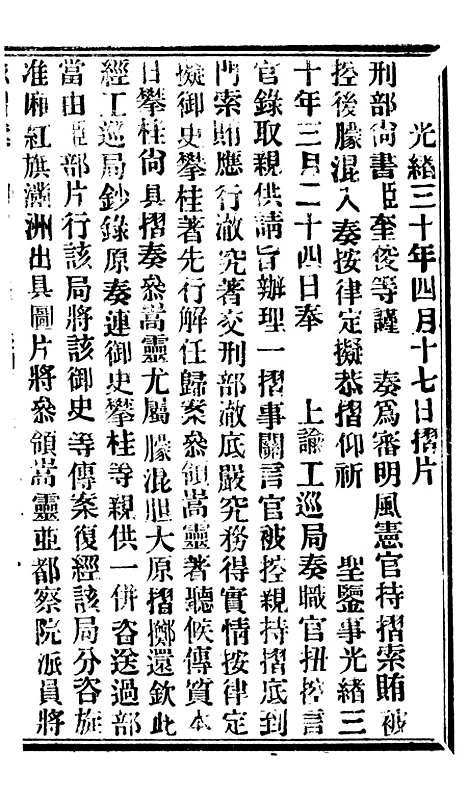 光緒三十年四月十七日摺片
刑部尚書臣奎俊等謹 奏爲審明風憲官持摺索賄被
控後朦混入奏按律定擬恭摺仰祈 聖鑒事光緒三
十年三月二十四日奉 上諭工巡局奏職官扭控言
官錄取親供請旨辦理一摺事關言官被控親持摺底到
門索賄應行澈究著交刑部澈底嚴究務得實情按律定
擬御史攀桂著先行解任歸案叅領嵩靈著聽候傳質本
日攀桂尙具摺奏叅嵩靈尤屬朦混胆大原摺擲還欽此
經工巡局鈔錄原奏連御史攀桂等親供一併咨送過部
當由臣部片行該局將該御史等傳案復經該局分咨旗
准廂紅旗滿洲出具圖片將叅領嵩靈並都察院派員將